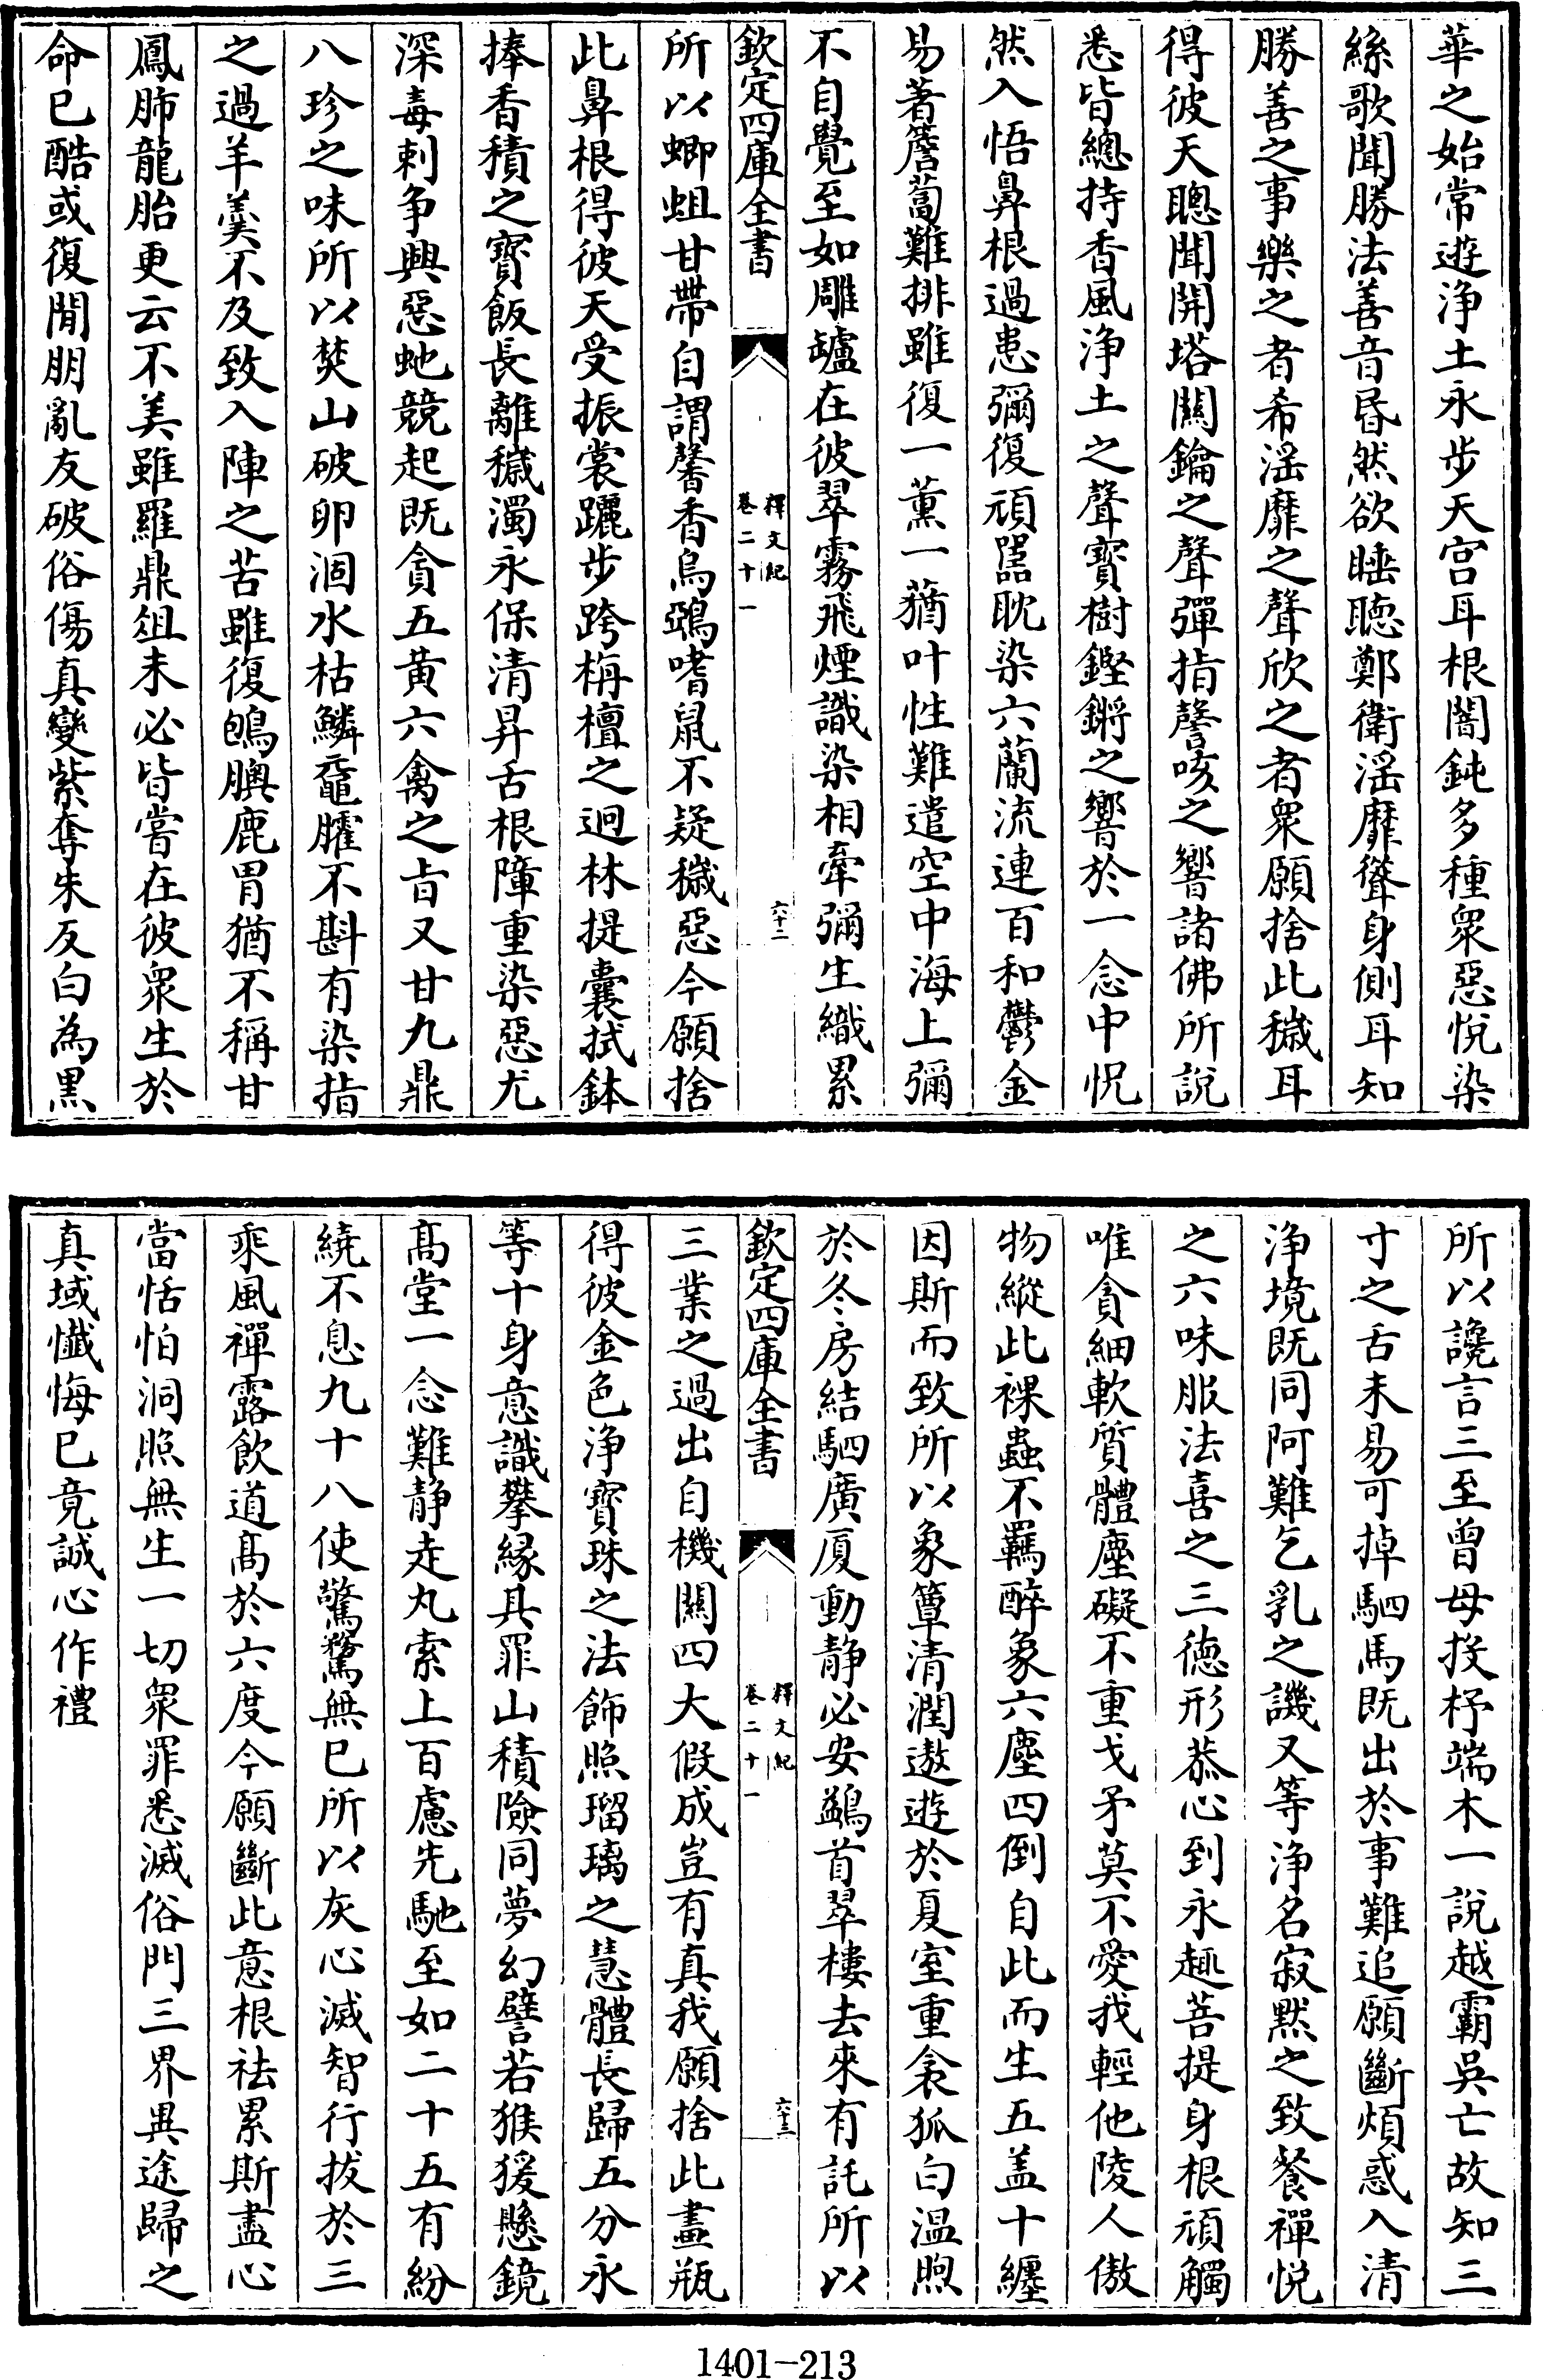 華之始常遊浄土永步天宫耳根闇鈍多種衆惡悅染
絲歌聞勝法善音昬然欲睡聴鄭衛滛靡聳身側耳知
勝善之事樂之者希滛靡之聲欣之者衆願捨此穢耳
得彼天聰聞開塔闗鑰之聲彈指謦咳之響諸佛所說
悉皆總持香風浄土之聲寳樹鏗鏘之響於一念中怳
然入悟鼻根過患彌復頑嚚耽染六蘭流連百和鬱金
易著簷蔔難排雖復一薰一蕕叶性難遣空中海上彌
不自覺至如雕罏在彼翠霧飛煙識染相牽彌生織累
欽定四庫全書
釋文紀
卷二十一
六十二
所以蝍蛆甘帶自謂馨香烏鵶嗜鼠不疑穢惡今願捨
此鼻根得彼天受振裳躧步跨栴檀之迥林提囊拭鉢
捧香積之寳飯長離穢濁永保清昇舌根障重染惡尤
深毒剌争興惡虵競起既貪五黄六禽之㫖又甘九鼎
八珍之味所以焚山破卵涸水枯鱗黿臛不斟有染指
之過羊羮不及致入陣之苦雖復鴝腴鹿胃猶不稱甘
鳳肺龍胎更云不美雖羅鼎俎未必皆嘗在彼衆生於
命已酷或復間朋亂友破俗傷真變紫奪朱反白為黒
所以讒言三至曾母投杼端木一說越霸吳亡故知三
寸之舌未易可掉駟馬既出於事難追願斷煩惑入清
浄境既同阿難乞乳之譏又等浄名寂黙之致餐禪悦
之六味服法喜之三徳形恭心到永趣菩提身根頑觸
唯貪細軟質體塵礙不重戈矛莫不愛我輕他陵人傲
物縱此裸蟲不羈醉象六塵四倒自此而生五盖十纒
因斯而致所以象簟清潤遨遊於夏室重衾狐白温煦
於冬房結駟廣厦動静必安鷁首翠樓去來有託所以
欽定四庫全書
釋文紀
卷二十一
六十三
三業之過出自機關四大假成豈有真我願捨此畫瓶
得彼金色浄寳珠之法飾照瑠璃之慧體長歸五分永
等十身意識攀縁具罪山積險同夢幻譬若猴猨懸鏡
髙堂一念難静走丸索上百慮先馳至如二十五有紛
繞不息九十八使驚鶩無已所以灰心滅智行拔於三
乘風禪露飲道髙於六度今願斷此意根袪累斯盡心
當恬怕洞照無生一切衆罪悉滅俗門三界異途歸之
真域懺悔已竟誠心作禮
1401-213